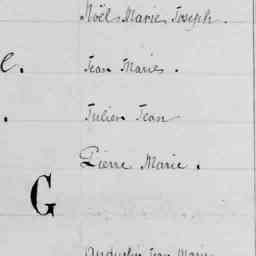 Noël Marie Joseph.
e. Jean Marie.
. Julien Jean
Pierre Marie.
G
Jean Marie